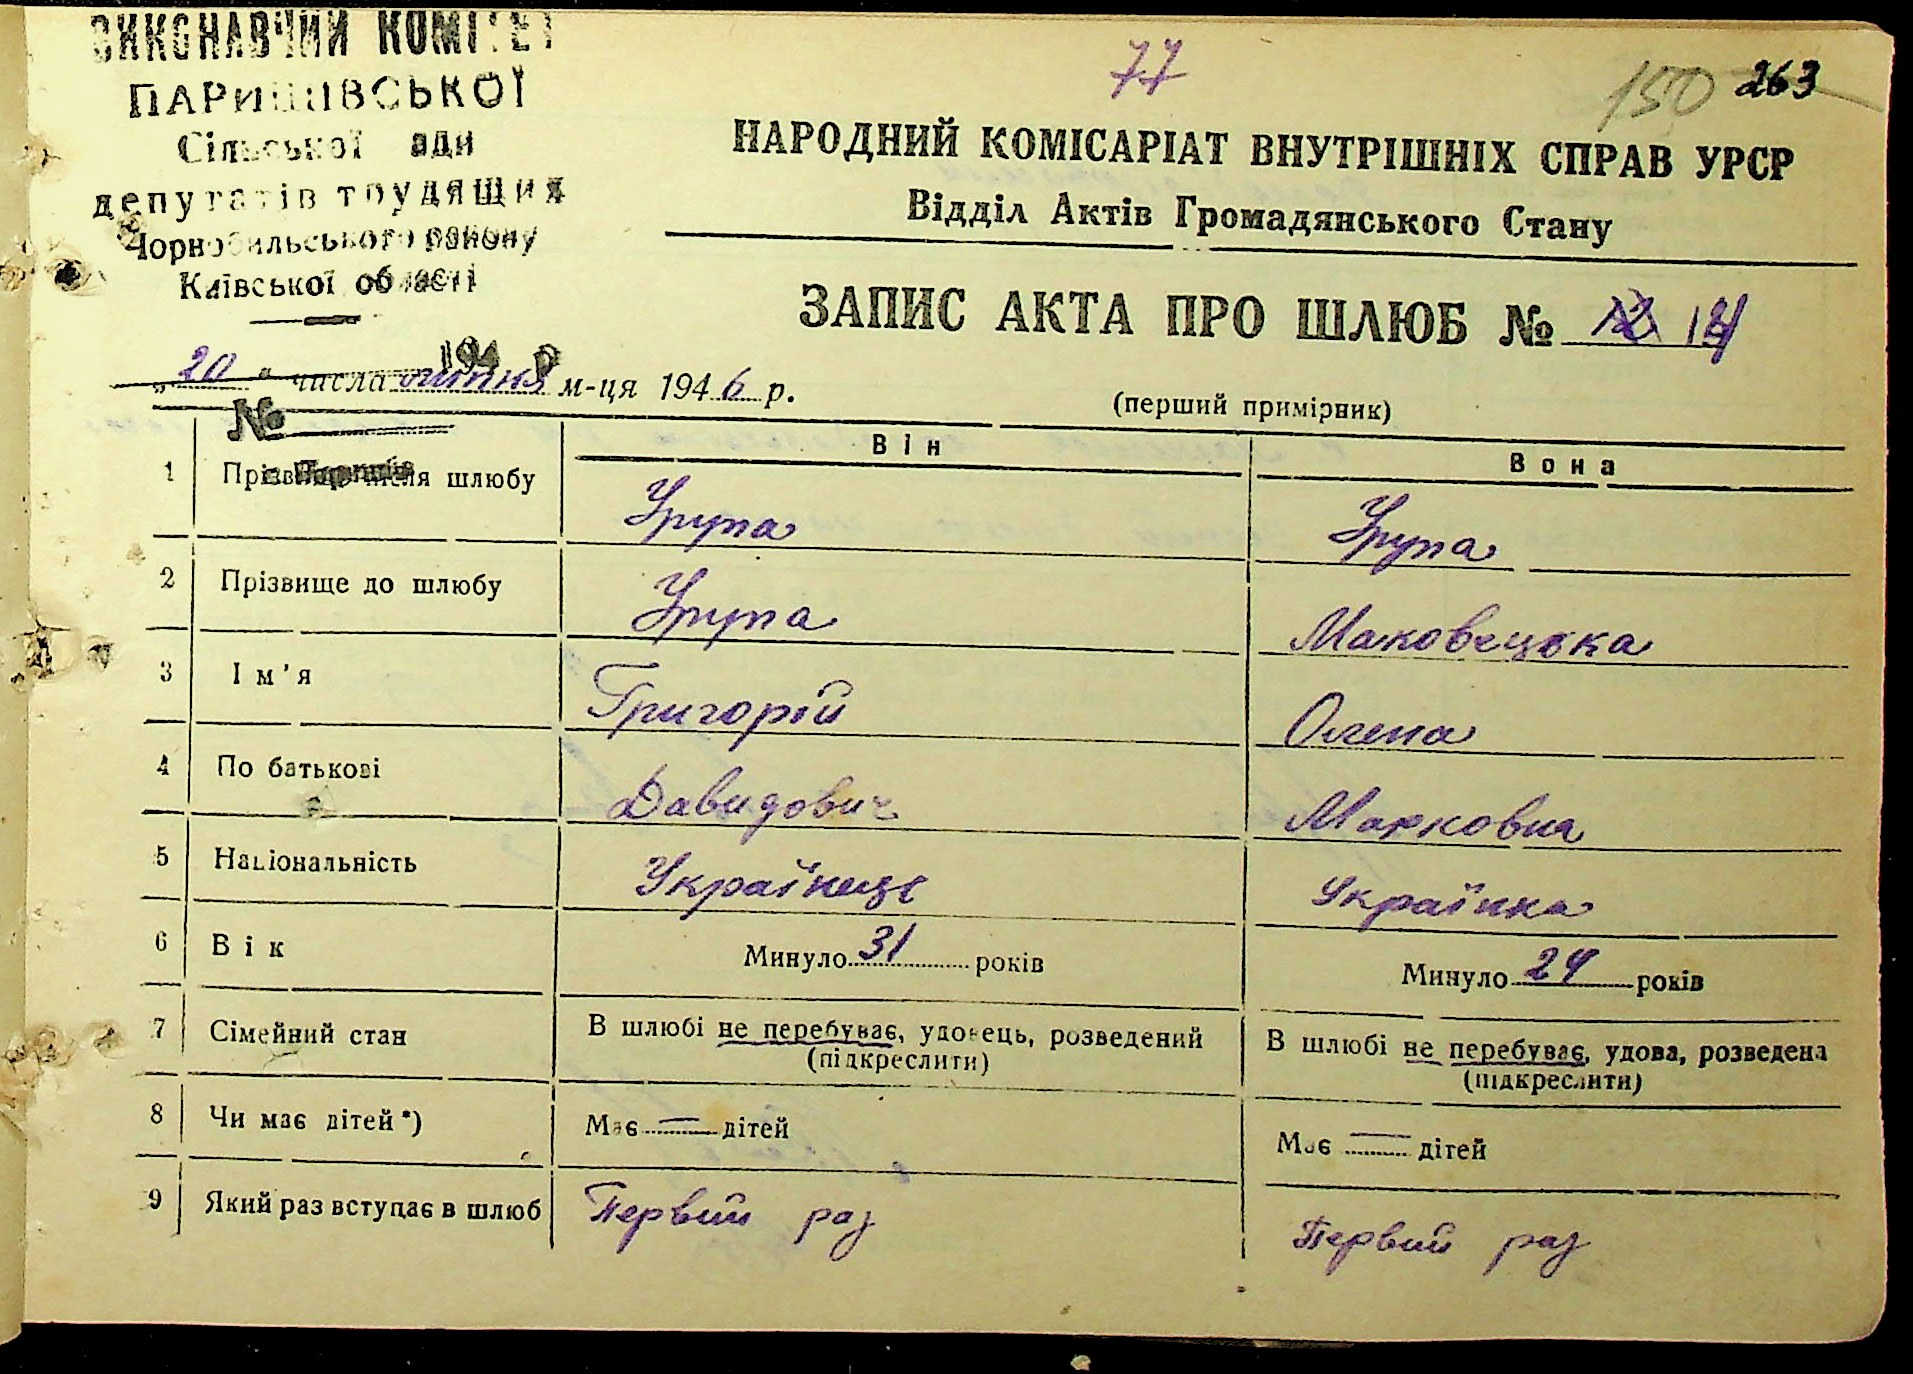 ВИКОНАВЧИЙ КОМІТЕТ
ПАРИШІВСЬКОЇ
Сільської Ради
депутатів трудящих
Чорнобильського району
Київської області
77
150 263
НАРОДНИЙ КОМІСАРІАТ ВНУТРІШНІХ СПРАВ УРСР
Відділ Актів Громадянського Стану
ЗАПИС АКТА ПРО ШЛЮБ №
194 р
„20" числа липня м-ця 1946 р.
(перший примірник)
№
Він
Вона
1 Прізвище після шлюбу Урупа Урупа
2 Прізвище до шлюбу Урупа Маковецька
3 Ім'я Григорій Олена
4 По батькові Давидович Марковна
5 Національність Українець Українка
6 Вік Минуло 31 років Минуло 24 років
7 Сімейний стан В шлюбі не перебуває, удовець, розведений В шлюбі не перебуває, удова, розведена
(підкреслити) (підкреслити)
8 Чи має дітей*) Має — дітей Має — дітей
9 Який раз вступає в шлюб Первий раз Первий раз